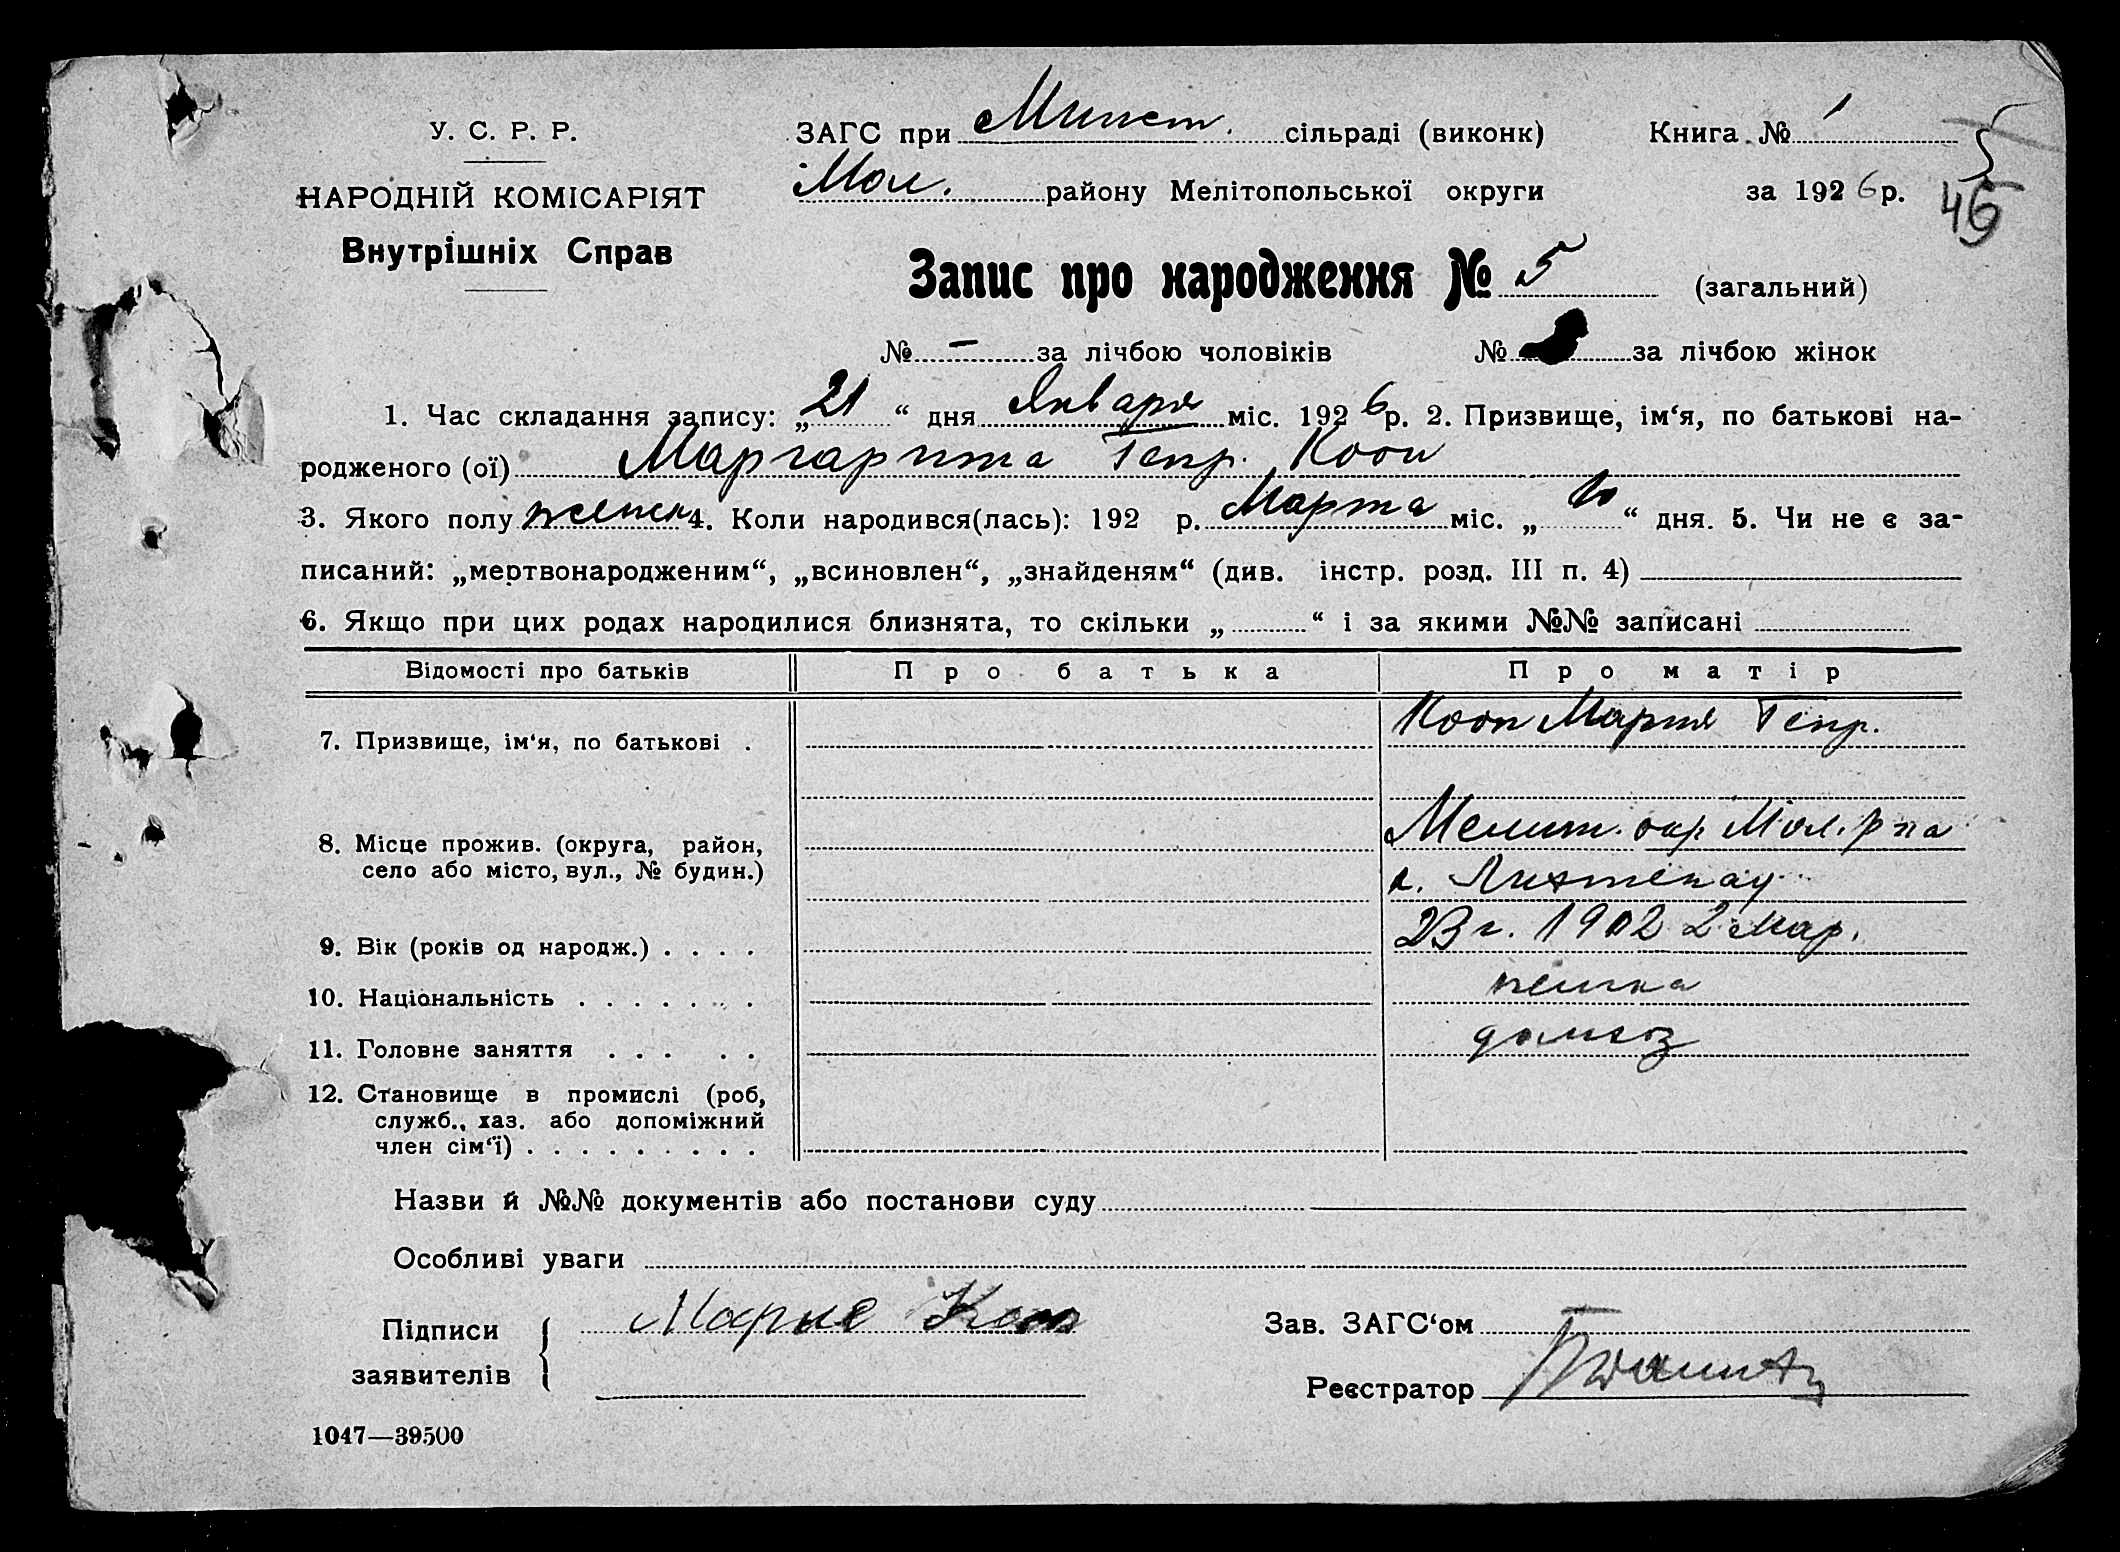 У. С. Р. Р.
НАРОДНІЙ КОМІСАРІЯТ
Внутрішніх Справ
ЗАГС при Минст. сільраді (виконк)
Мол. району Мелітопольської округи
Книга № 1
за 1926 р.
5
45
Запис про народження № 5 (загальний)
№ – за лічбою чоловіків № за лічбою жінок
1. Час складання запису: „21“ дня Января міс. 1926 р. 2. Призвище, ім‘я, по батькові на-
родженого (ої) Маргарита Генр. Кооп
3. Якого полу женск 4. Коли народився(лась): 192 р. Марта міс. „10“ дня. 5. Чи не є за-
писаний: „мертвонародженим“, „всиновлен“, „знайденям“ (див. інстр. розд. III п. 4)
6. Якщо при цих родах народилися близнята, то скільки „ “ і за якими №№ записані
Відомості про батьків Про батька Про матір
7. Призвище, ім‘я, по батькові . Кооп Мария Генр.
8. Місце прожив. (округа, район, село або місто, вул., № будин.) Мелит. окр Мол. р на
с. Лихтенау
9. Вік (років од народж.) . . . . 23 г. 1902 2 мар.
10. Національність . . . . . . . немка
11. Головне заняття . . . . . домхоз
12. Становище в промислі (роб,
служб., хаз. або допоміжний
член сім‘ї) . . . . . . . . .
Назви й №№ документів або постанови суду
Особливі уваги
Підписи
заявителів
Марие Кооп
Зав. ЗАГС‘ом
Реєстратор
1047—39500